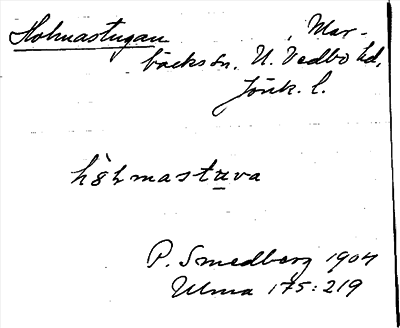 Holmastugan, Mar-
bäcks sn, N. Vedbo hd,
Jönk. l.
P. Smedberg 1904
Ulma 175:219